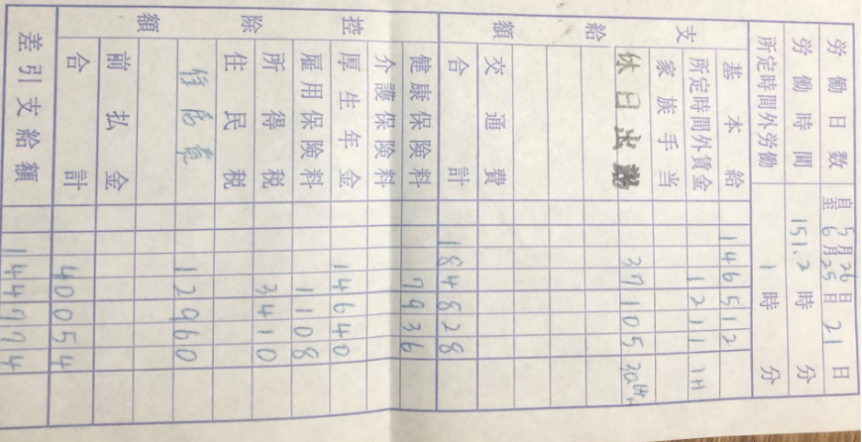 労働日数 自 5月26日 至 6月25日 21 日
労働時間 151.2 時 分
所定時間外労働 1 時 分
支給額
基本給 146512
所定時間外賃金 1211 1H
家族手当
休日出勤 37105
交通費
合計 184828
控除額
健康保険料 7936
介護保険料
厚生年金 14640
雇用保険料 1108
所得税 3410
住民税
12960
前払金
合計 40054
差引支給額 144774